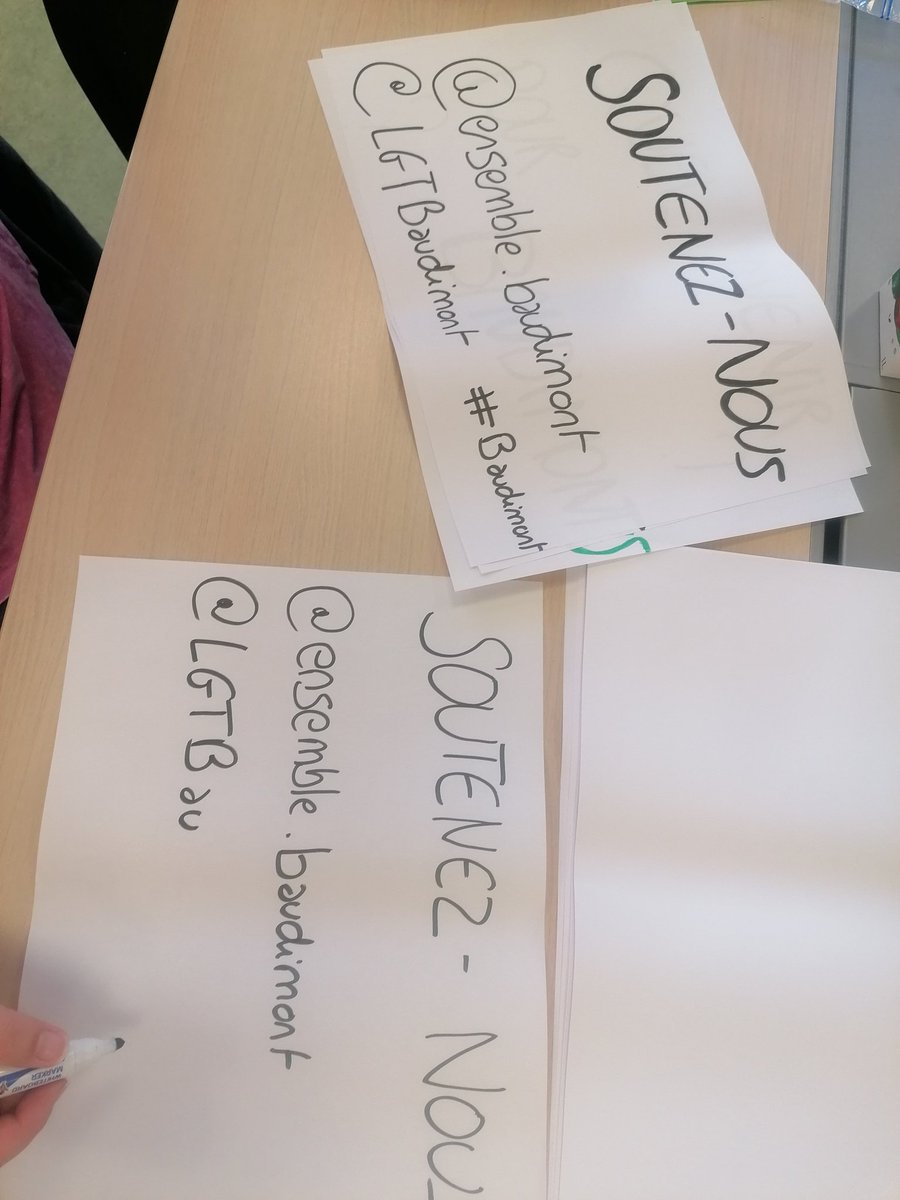 SOUTENEZ-NOUS
@ensemble.baudimont
@LGTBaudimont #Baudimont
SOUTENEZ-NOU
@ensemble.baudimont
@LGTBau
WHITEBOARD
MARKER